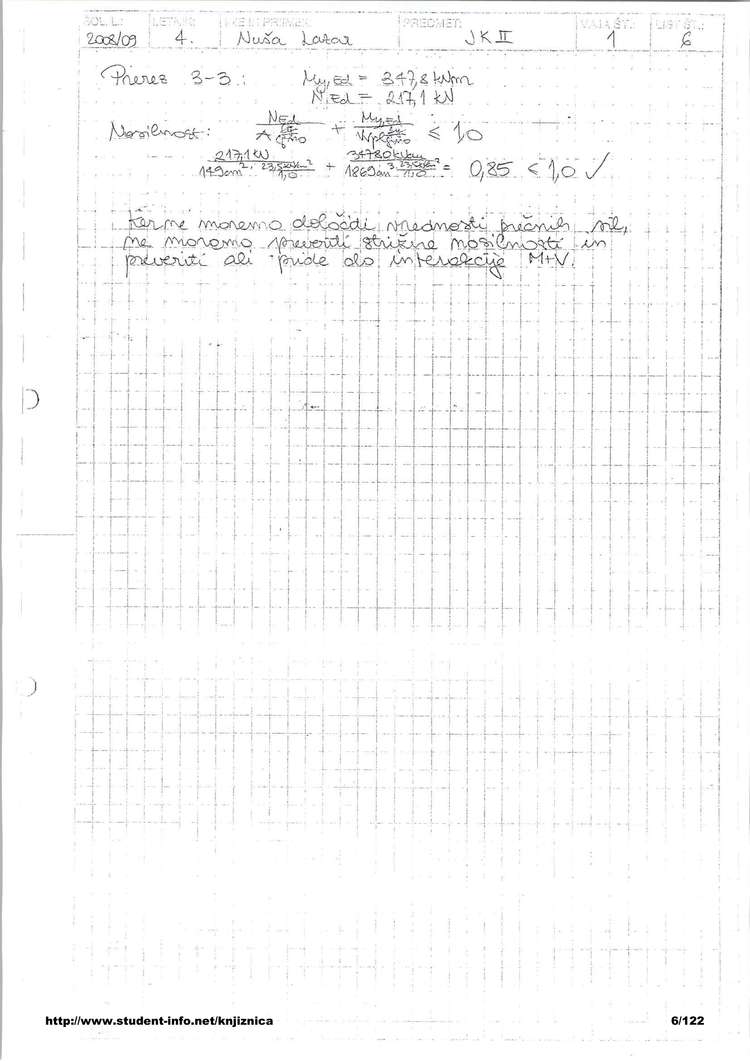 ŠOL. L.: LETNIK: IME IN PRIIMEK: PREDMET: VAJA ŠT.: LIST ŠT.:
2008/09 4. Nuša Lazar JK II 1 6
Prerez 3-3: My,Ed = 347,8 kNm
N,Ed = 217,1 kN
Nosilnost: NEd / (A fy/γM0) + My,Ed / (Wpl fy/γM0) ≤ 1,0
217,1 kN / (149 cm² · 23,5 kN/cm² / 1,0) + 34780 kNcm / (1869 cm³ · 23,5 kN/cm² / 1,0) = 0,85 < 1,0 ✓
Ker ne moremo določiti vrednosti prečnih sil,
ne moremo preveriti strižne nosilnosti in
preveriti ali pride do interakcije M+V.
http://www.student-info.net/knjiznica 6/122